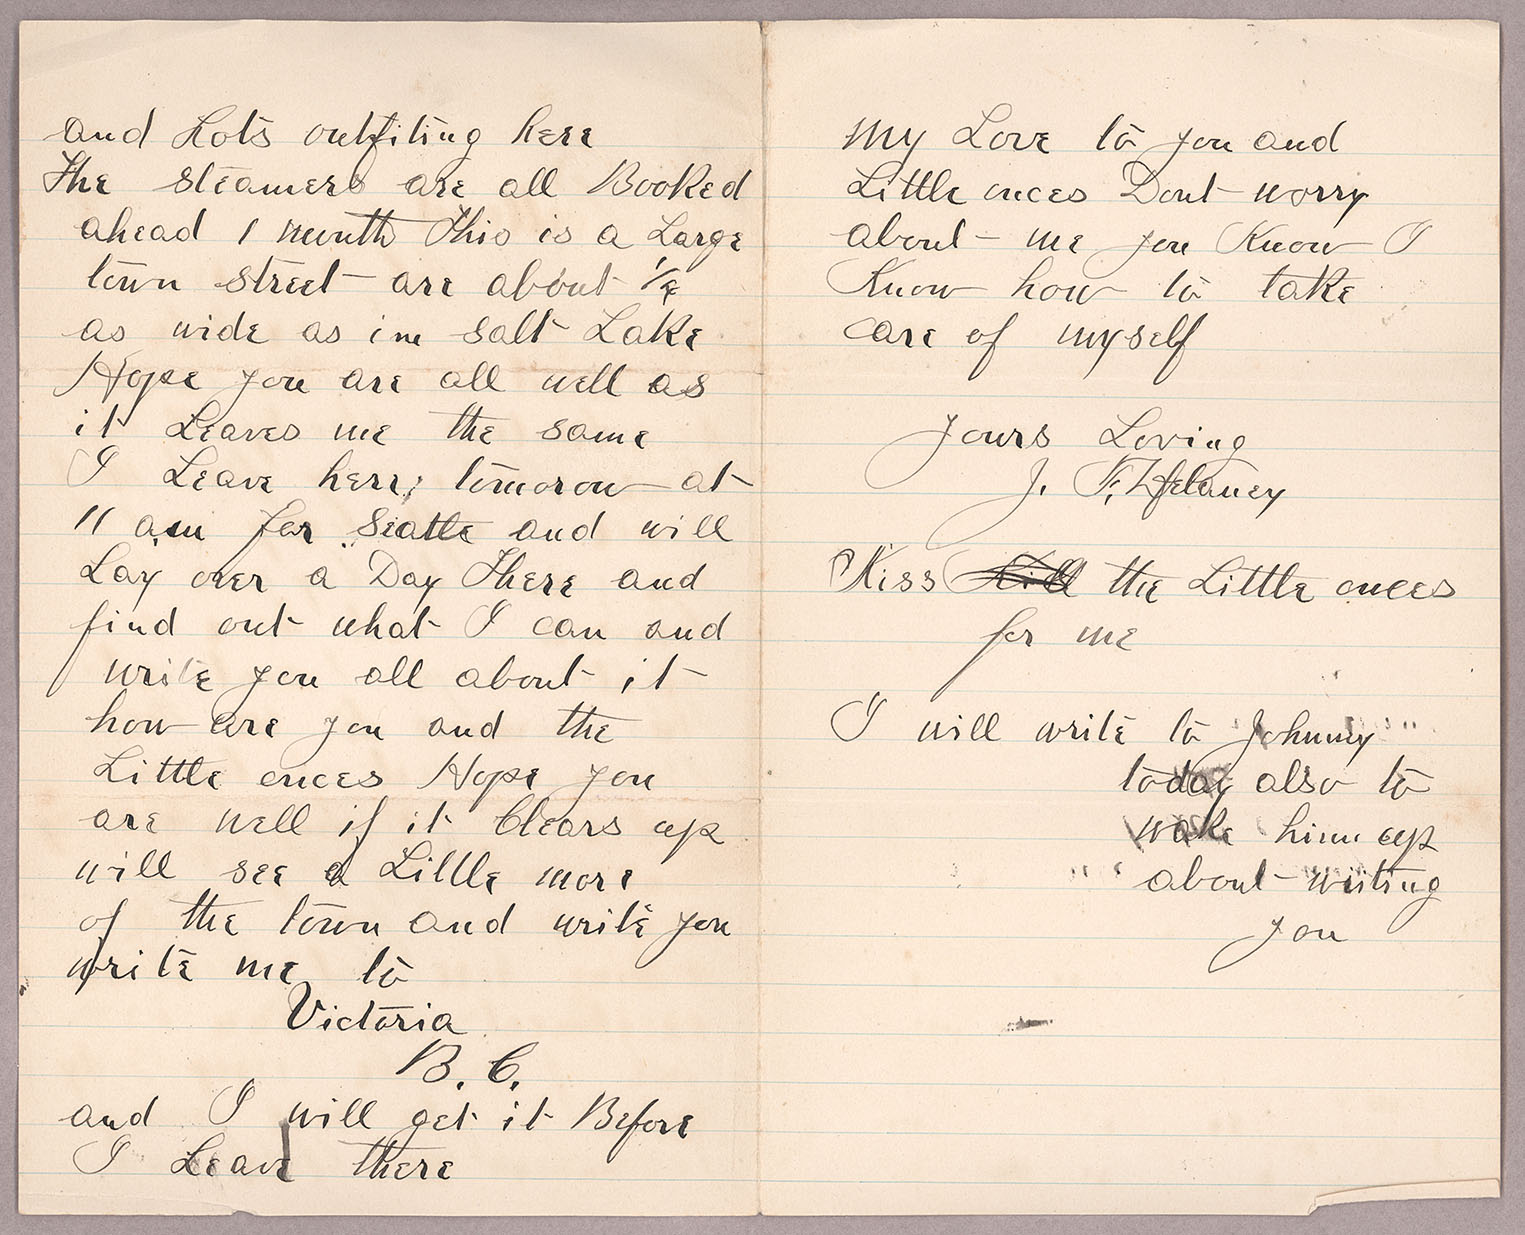 and Lots outfiting here
The steamers are all Booked
ahead 1 month This is a Large
town street are about
as wide as in salt Lake
Hope you are all well as
it Leaves me the same
I Leave here tomorow at
11 am for Seatle and will
Lay over a Day There and
find out what I can and
write you all about it
how are you and the
Little onces Hope you
are well if it Clears up
will see a Little more
of the town and write you
write me to
Victoria
B. C.
and I will get it Before
I Leave there
My Love to you and
Little onces Dont worry
about me you Know I
Know how to take
care of myself
Yours Loving
J. F. Delaney
Kiss the Little onces
for me
I will write to Johnny
today also to
wake him up
about writing
you